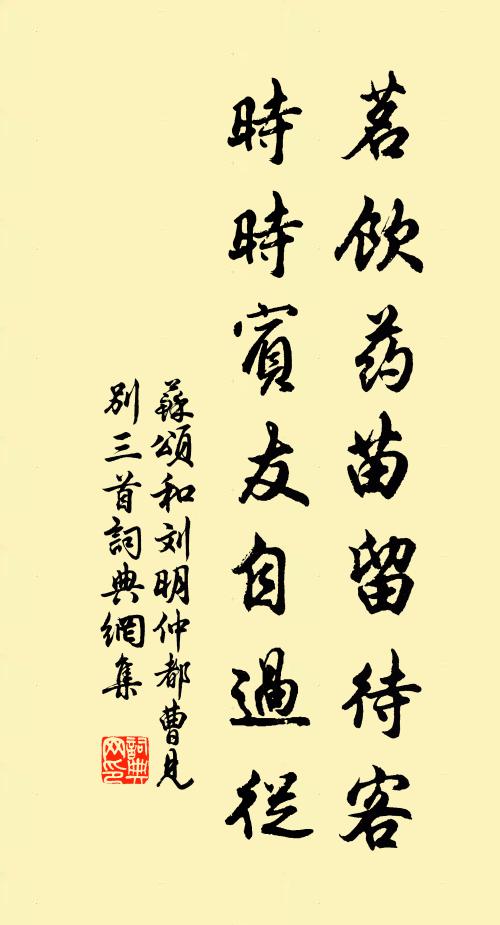 茗飲药苗留待客
時時賓友自過從
蘇頌和刘明仲都曹見
别三首詞典網集
詞典网印